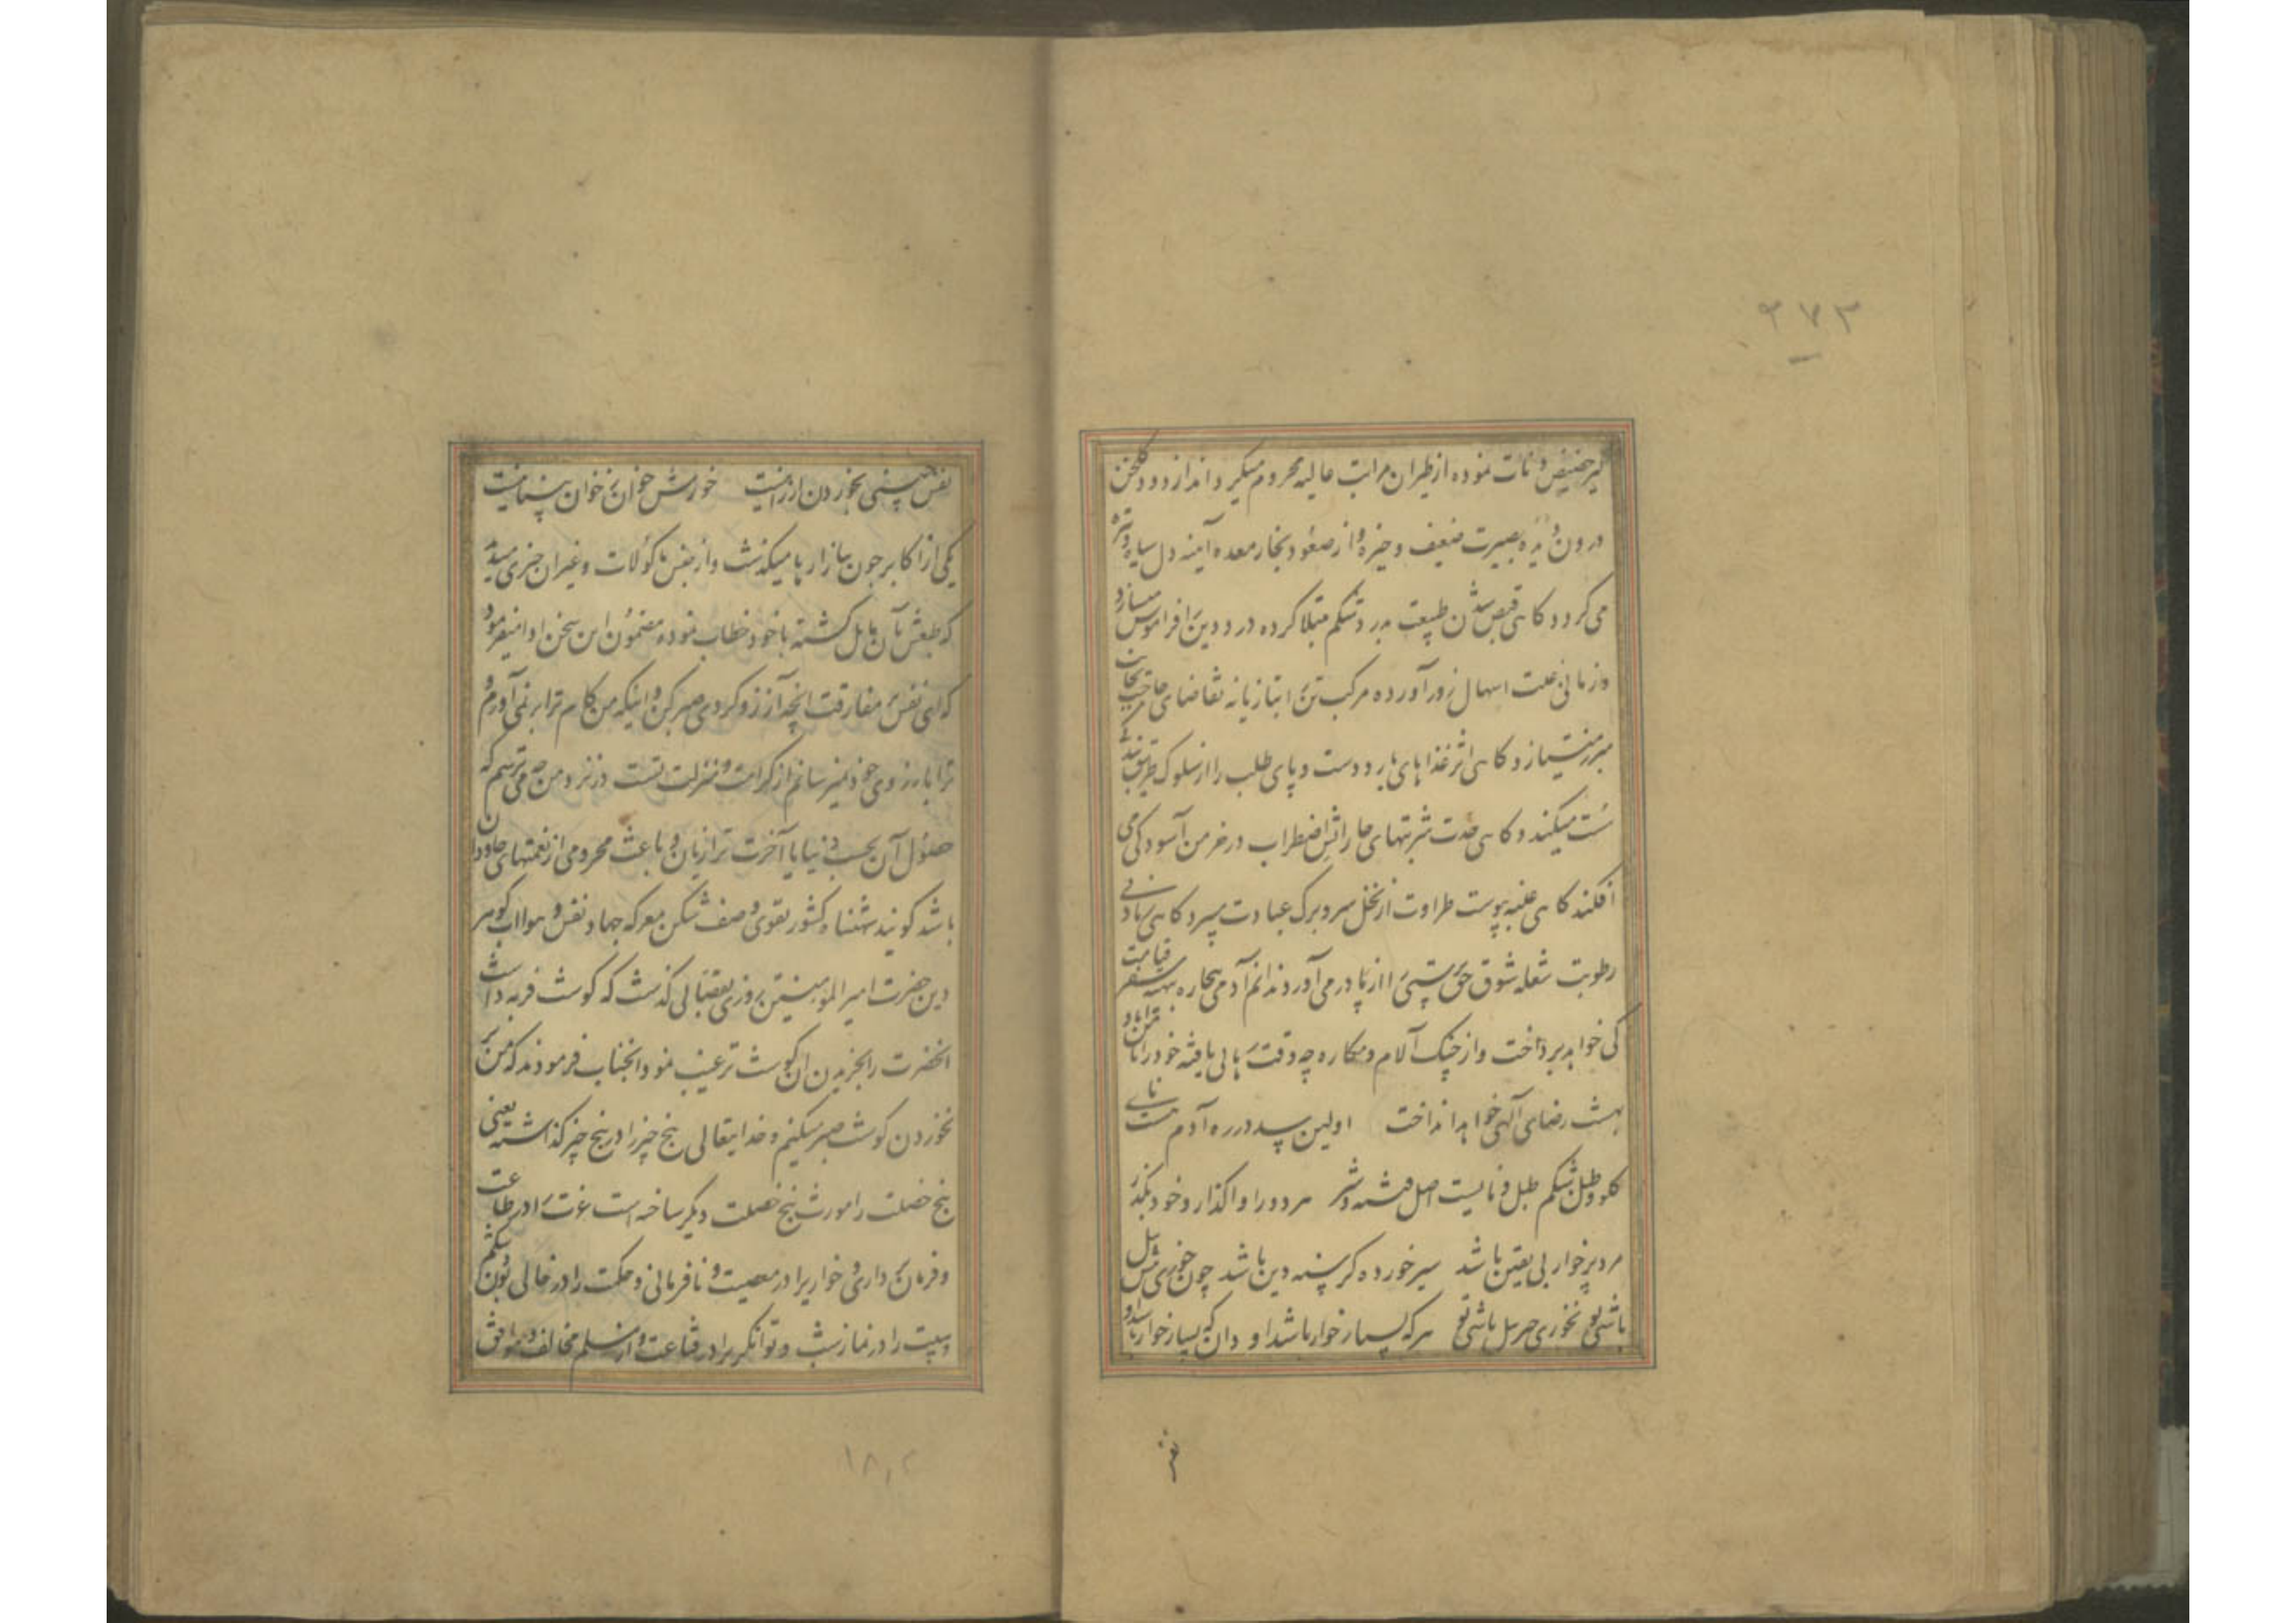 ۲۷۳
گیر حضیض دنائت نموده از طیران مراتب عالیه محروم میگرداند از دود گلخن
درون دیده بصیرت ضعیف و خیره و از صعود بخار معده آینه دل سیاه و تیره
می کردد کاهی قبض شدن طبیعت بدرد شکم مبتلا کرده درد دین را فراموش میسازد
و زمانی علت اسهال زور آورده مرکب تن را بتازیانه تقاضای حاجت
مبرز میتازد و کاهی اثر غذاهای بارد دست و پای طلب را از سلوک طریق بندکی
سست میکند و کاهی حدت شربتهای حار آتش اضطراب در خرمن آسودکی می
افکند کاهی غلبه یبوست طراوت از نخل سرو برک عبادت میبرد و کاهی زیادتی
رطوبت شعله شوق حق پرستی را از پا در می آورد ندانم آدمی بیچاره بتهیه سفر قیامت
کی خواهد پرداخت و از چنک آلام و مکاره چه وقت رهایی یافته خود را
بهشت رضای آلهی خواهد انداخت اولین سد در ره آدم هست نای
کلو و طبل شکم طبل و نایست اصل فتنه و شر هر دو را واکذار و خود بکذر
مرد پر خوار بی یقین باشد سیر خورده کرسنه دین باشد چون خوری بیش پیل
باشی تو نخوری جبرئیل باشی تو هر که بسیار خوار باشد او دان که بسیار خوار باشد او
نفس
نفس پستی بخوردن ارزانیست خورش خوان ز خوان پشیمانیست
یکی از اکابر چون ببازارها میکذشت و از جنس ماکولات و غیر آن چیزی میدید
که طبعش بآن مایل کشته با خود خطاب نموده مضمون این سخن ادا میفرمود
که ای نفس بر مفارقت انچه آرزو کردی صبر کن و اینکه من کام ترا بر نمی آورم و
ترا بارزوی خود نمیرسانم از کرامت و منزلت تست در نزد من چه میترسم که
حصول آن بحسب دنیا یا آخرت ترا زیان و باعث محرومی از نعمتهای جاودان
باشد کویند شهنشاه کشور تقوی و صف شکن معرکه جهاد نفس و هوا اب کوهر
دین حضرت امیر المومنین روزی بقصابی کذشت که کوشت فربه داشت
انحضرت را بخریدن ان کوشت ترغیب نمود انجناب فرمودند که من بر
نخوردن کوشت صبر میکنم و خدایتعالی پنج چیز را در پنج چیز کذاشته یعنی
پنج خصلت را مورث پنج خصلت دیکر ساخته است عزت را در طاعت
و فرمان برداری و خواری را در معصیت و نافرمانی و حکمت را در خالی بودن شکم
و هیبت را در نماز شب و توانکری را در قناعت و از مسلم مخالف و موافق
۱۸۲